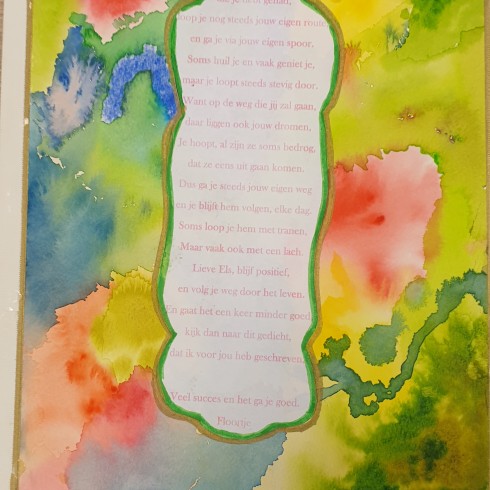 loop je nog steeds jouw eigen route
en ga je via jouw eigen spoor.
Soms huil je en vaak geniet je,
maar je loopt steeds stevig door.
Want op de weg die jij zal gaan,
daar liggen ook jouw dromen,
Je hoopt, al zijn ze soms bedrog,
dat ze eens uit gaan komen.
Dus ga je steeds jouw eigen weg
en je blijft hem volgen, elke dag.
Soms loop je hem met tranen,
Maar vaak ook met een lach.
Lieve Eb, blijf positief,
en volg je weg door het leven.
En gaat het een keer minder goed,
kijk dan naar dit gedicht,
dat ik voor jou heb geschreven.
Veel succes en het ga je goed.
Floortje